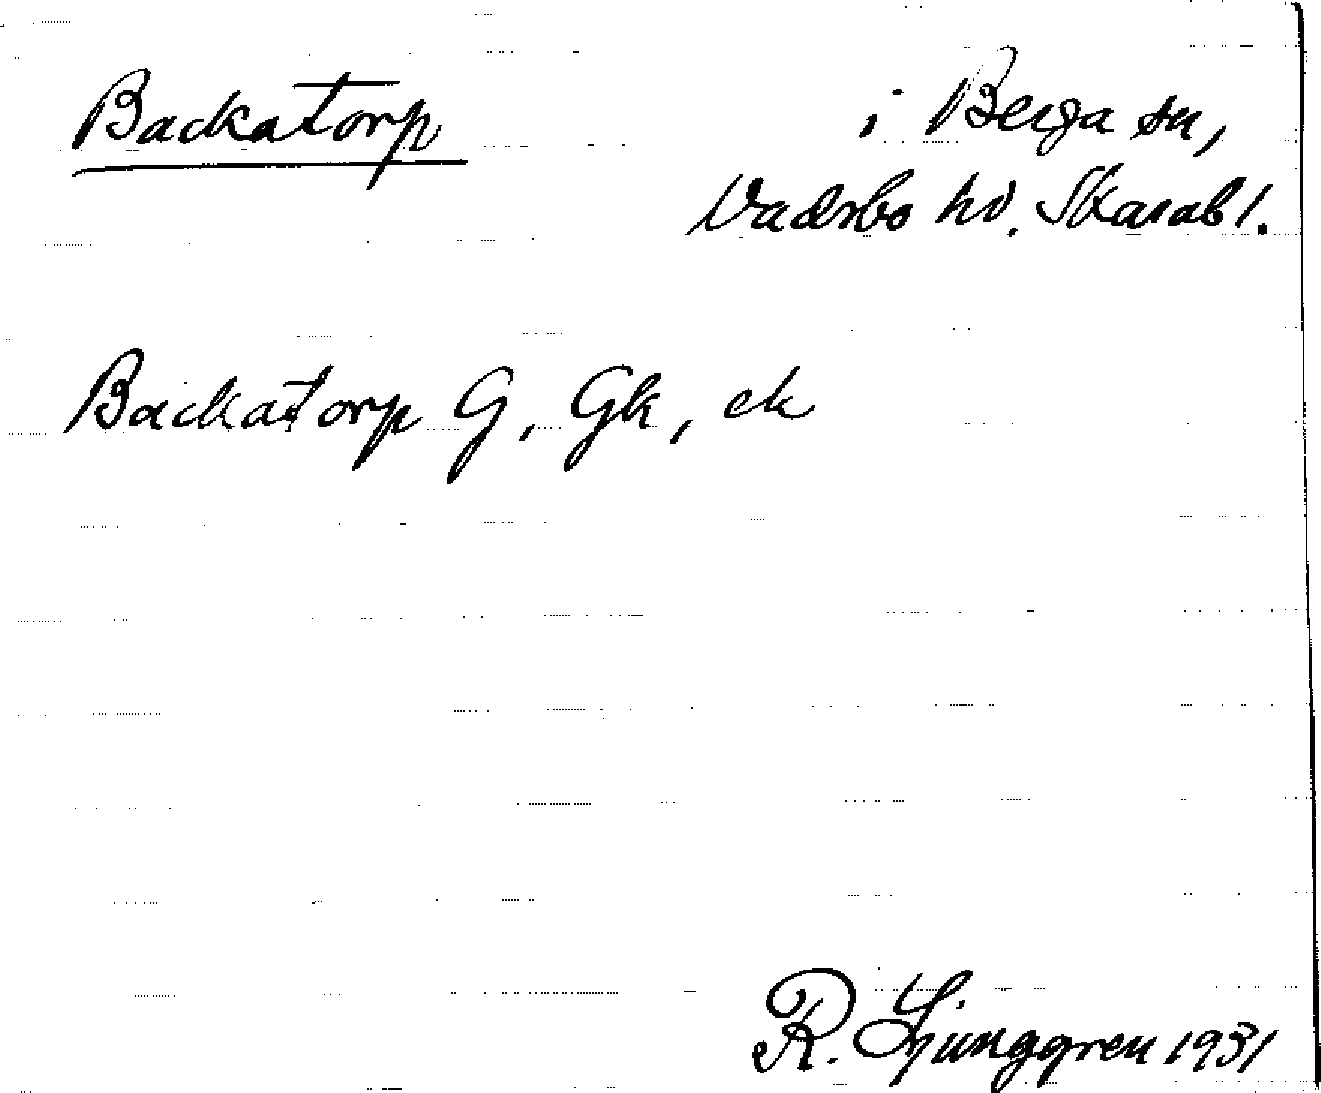 Backatorp
i Berga sn,
Vadsbo hd. Skarabl.
Backatorp G, Gk, ek
R. Ljunggren 1931